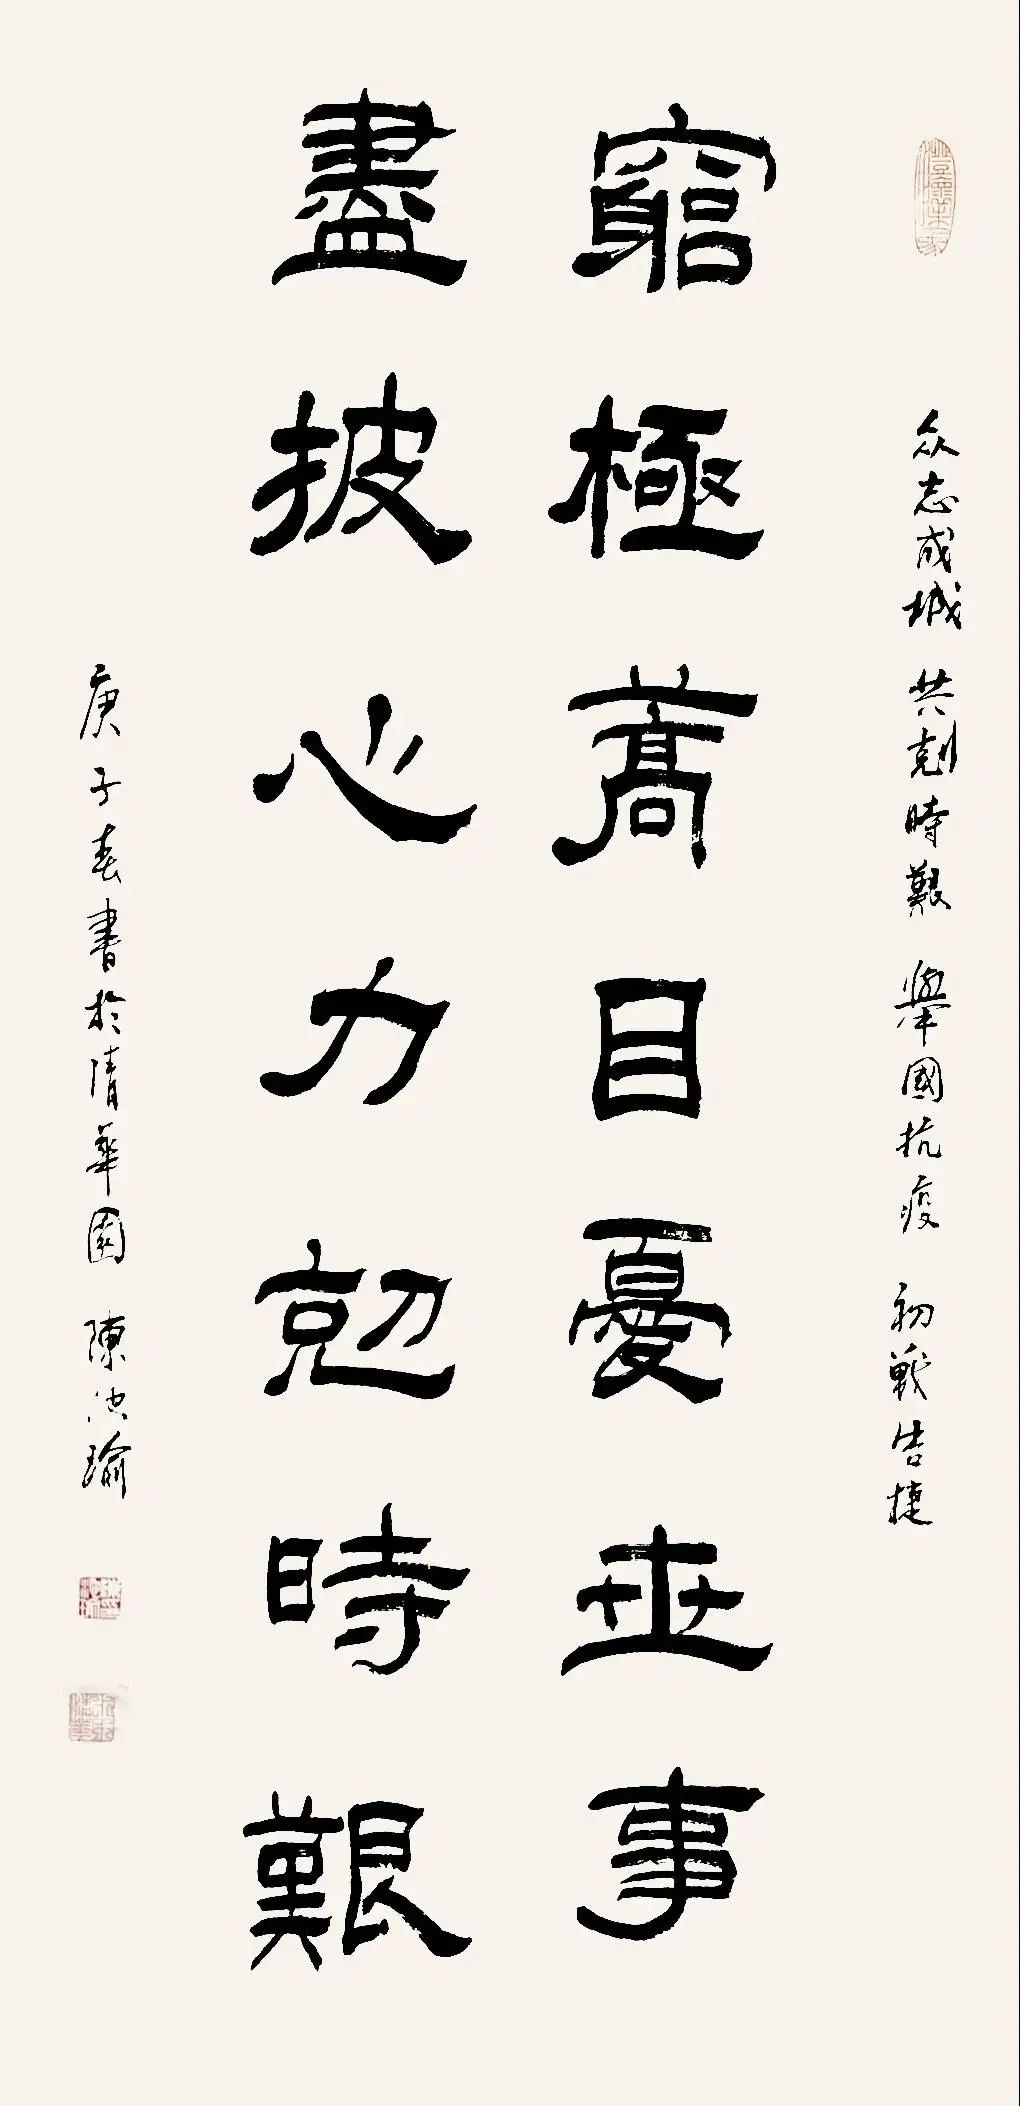 澄懷味象
众志成城 共剋時艱 舉國抗疫 初戰告捷
窮極蒿目憂世事
盡披心力剋時艱
庚子春書於清華園 陳池瑜